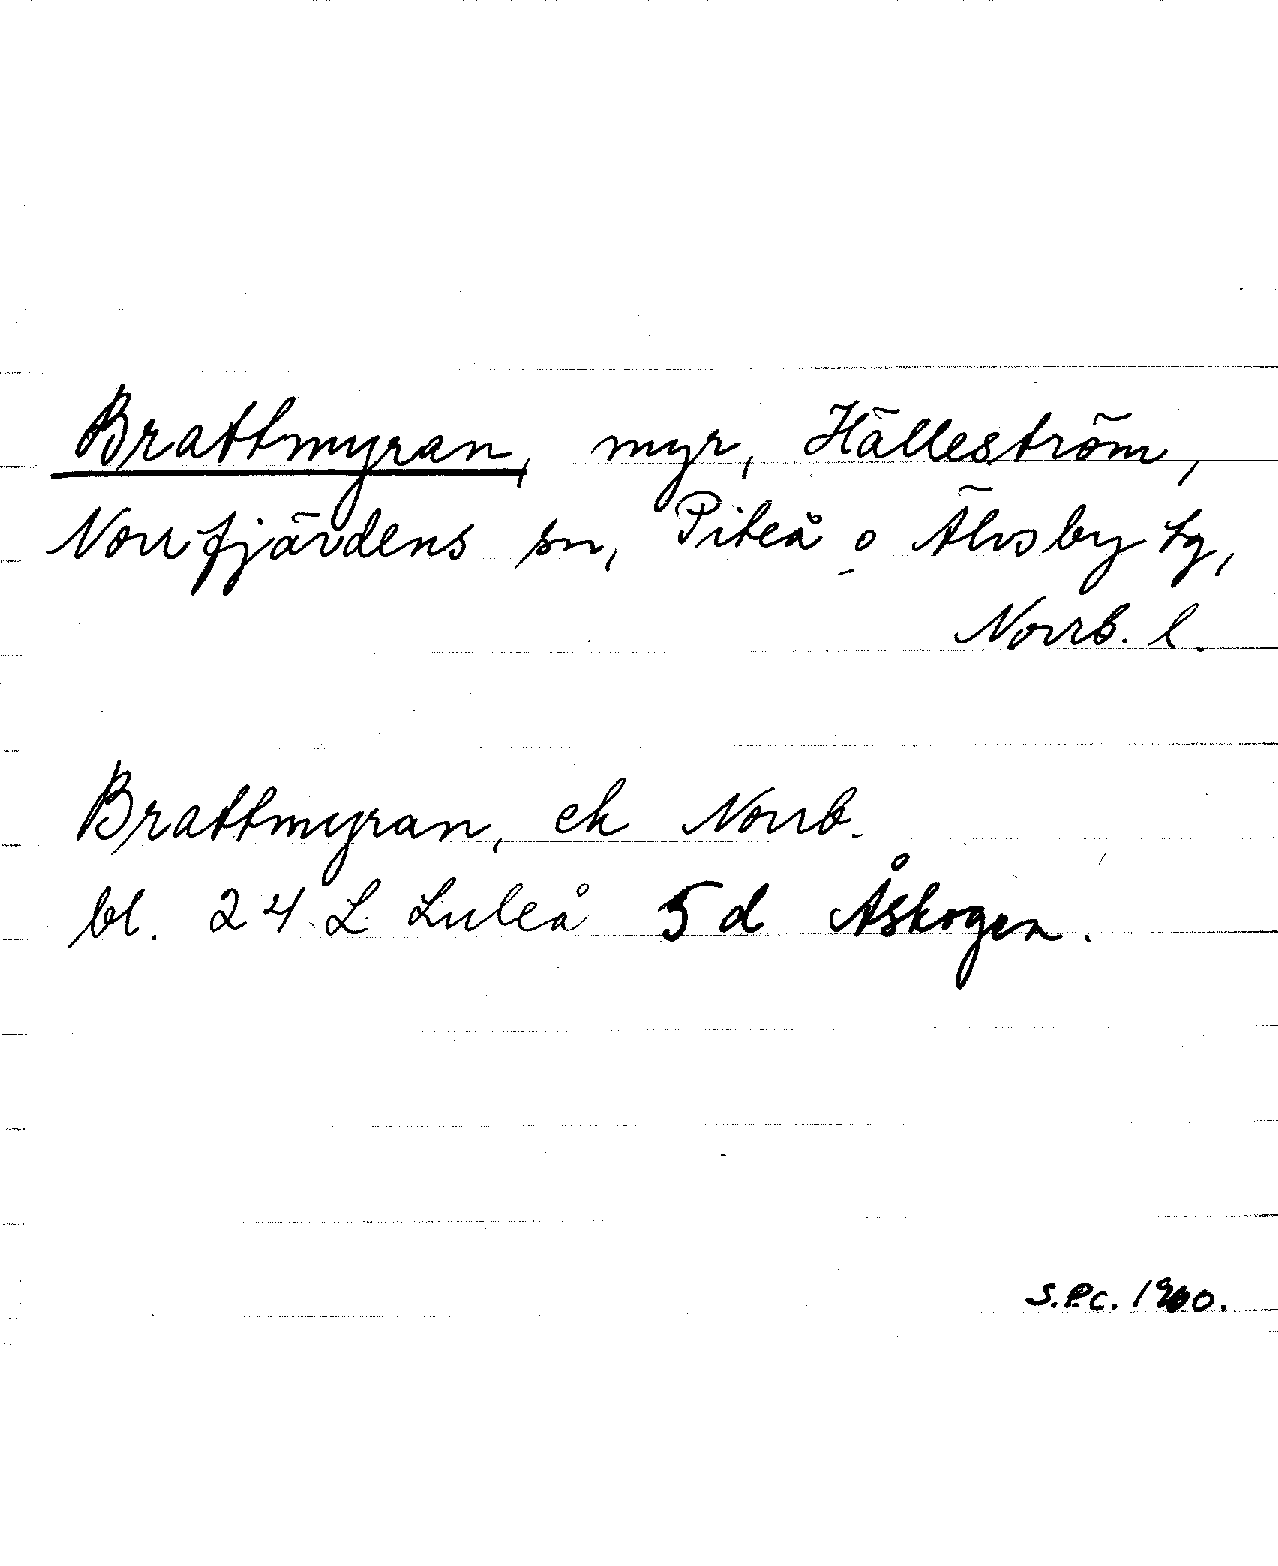 Brattmyran, myr, Hälleström,
Norrfjärdens sn, Piteå o Älvsby tg,
Norrb. l.
Brattmyran, ek Norrb.
bl. 24 L Luleå 5d Åskogen.
S.P.C. 1960.